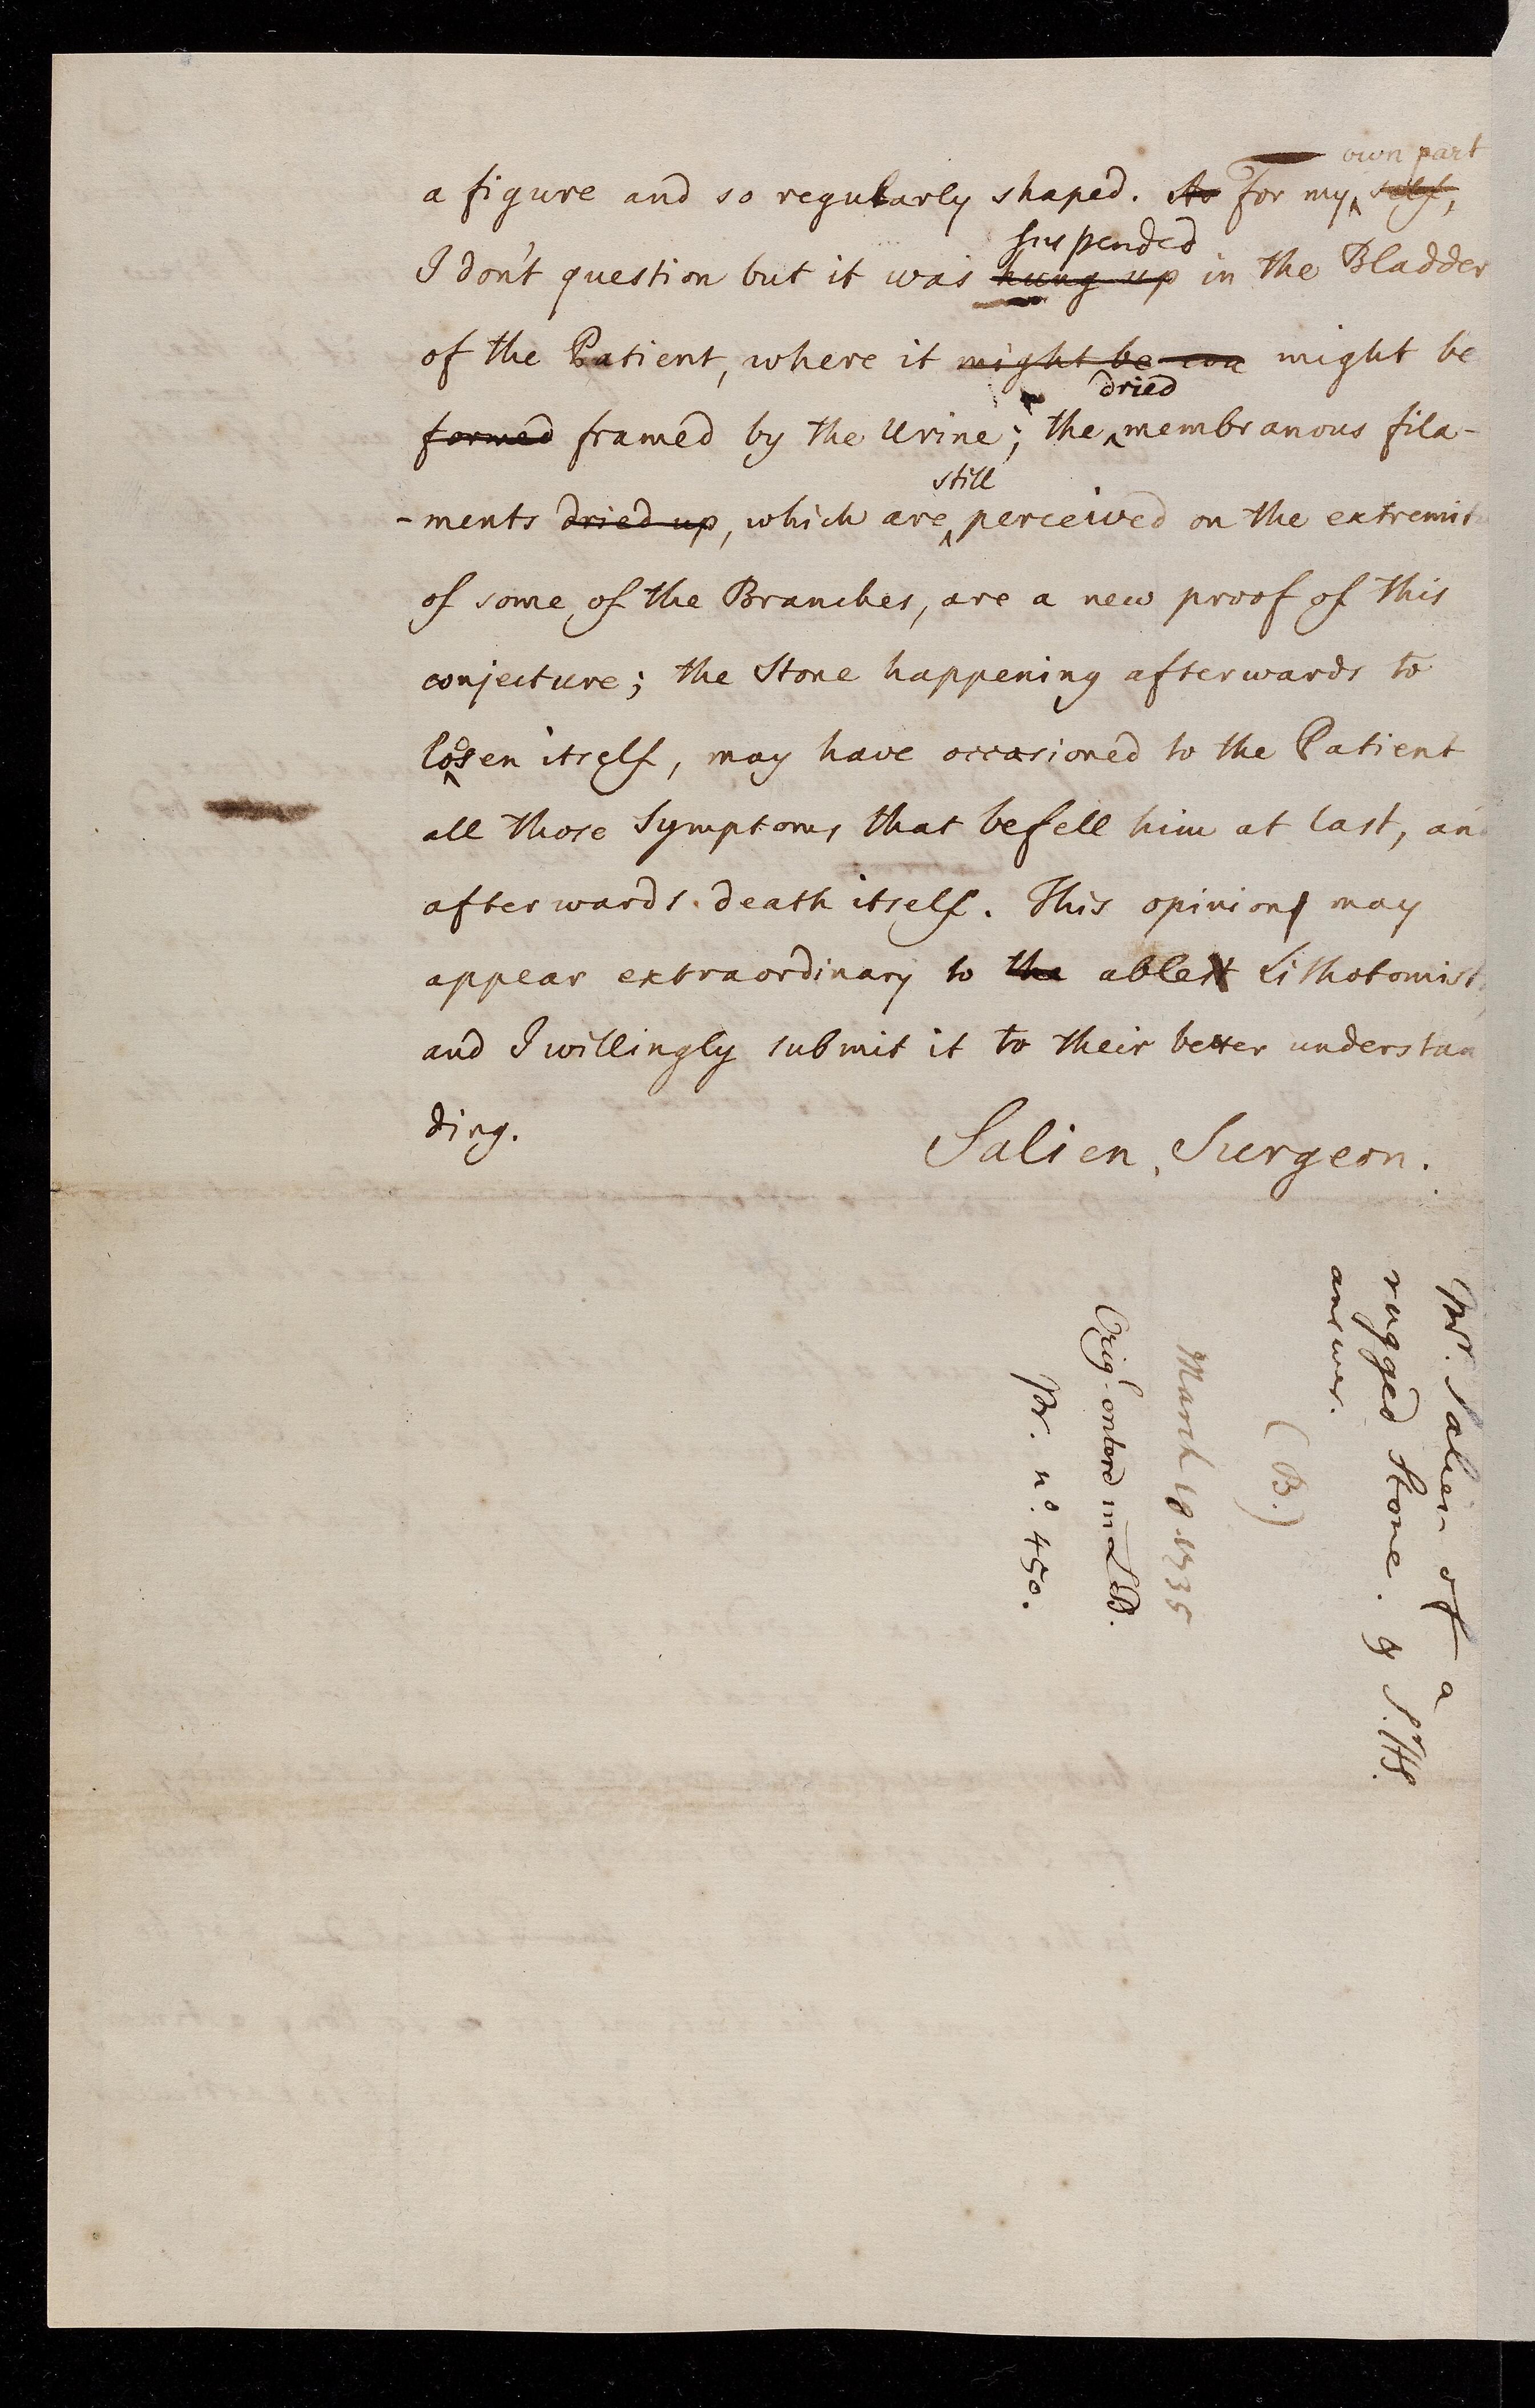 a figure and so regularly shaped. As For my own part self,
I don't question but it was hung up suspended in the Bladder
of the Patient, where it might be coa might be
formed framed by the Urine; the dried membranous fila-
-ments dried up, which are still perceived on the extremit
of some of the Branches, are a new proof of this
conjecture; the Stone happening afterwards to
loosen itself, may have occasioned to the Patient
all those Symptoms that befell him at last, and
afterwards death itself. This opinion may
appear extraordinary to the able Lithotomist
and I willingly submit it to their better understan
ding.
Salien, Surgeon.
Mr. Salien of a
rugged Stone. & Sr. HS.
answer.
(B.)
March 18 1735
Origl. enterd in LB.
Pr. no. 450.